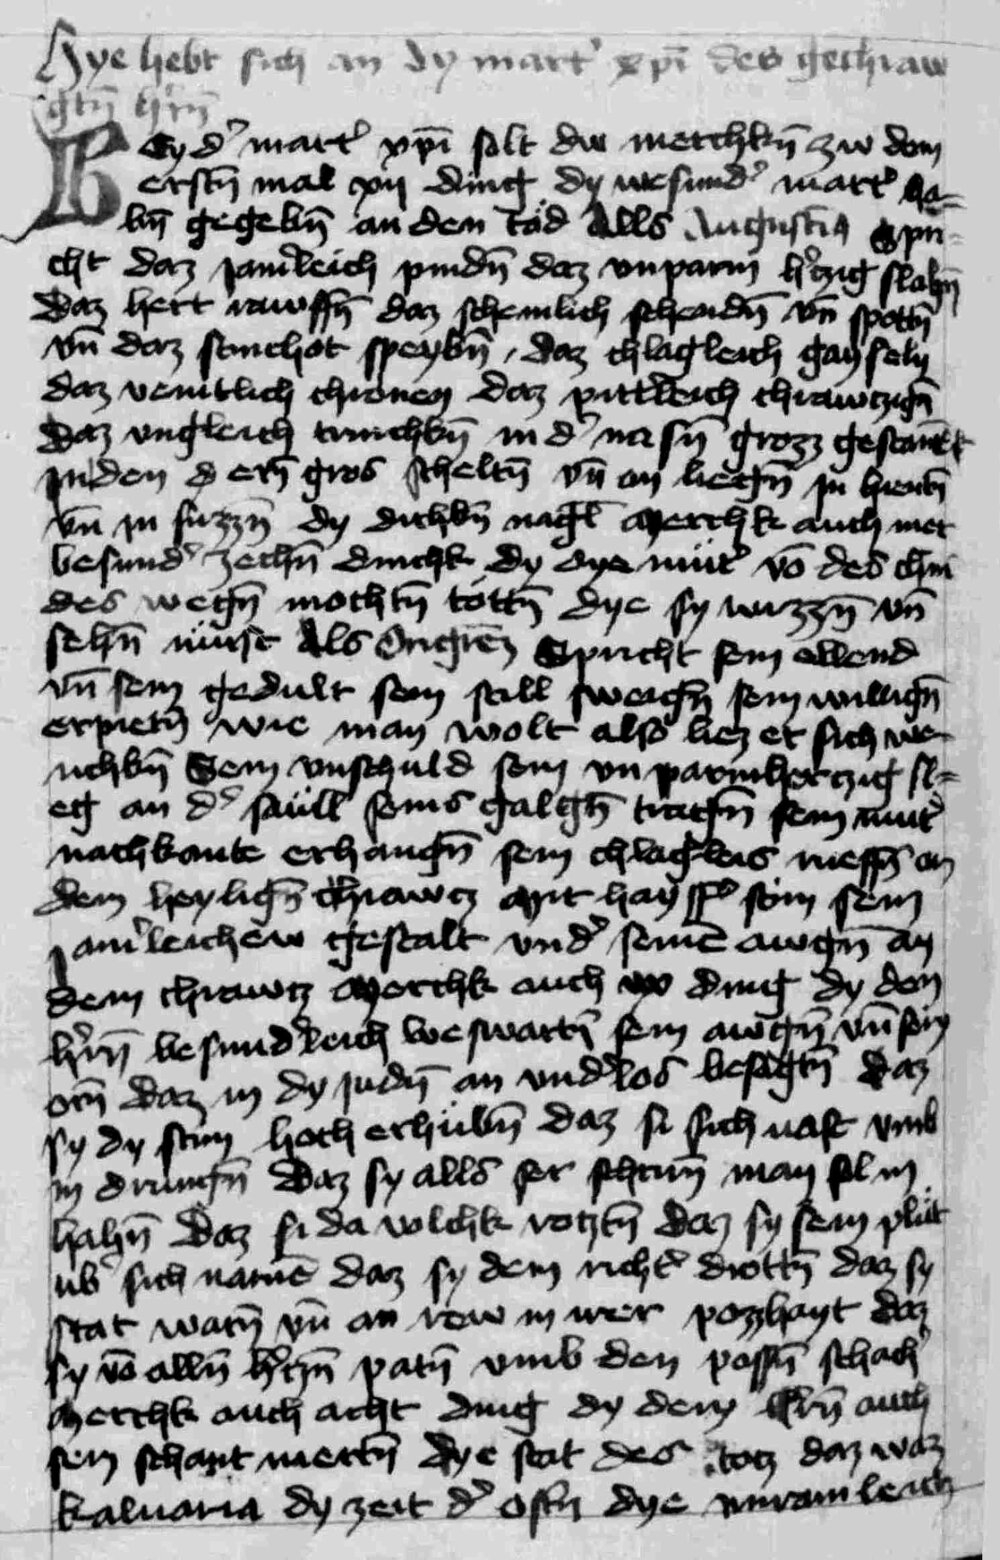 Hye hebt sich an dy mart' xpi des gechraw
gtn h'rn
Bey d' mart' xpi solt dw merchkn zw dem
erstn mal xij ding dy wesund' mart' ha-
bn gegebn an den tod Alls Augustin9 spri-
cht daz jamleich pindn daz vnparm h'tzig slahn
daz hert rawffn daz schemlich schendn vn spottn
vn daz smechot speybn, daz chlagleich gayseln
daz veintlich chronen daz pittleich chrawtzign
daz vngleich trinchkn in d' nasn grozz gestankt
juden d ern gros scheltn vn an liegn jn hentn
vn jn fuzzn dy dichkn nagl Merchk auch mer
besund' zechn dinchk dy dye mut' vo des chin
des wegn mochtn tottn dye sy wizzn vn
sehn must Als Origenes Spricht sein ellend
vn sein gedult sein still sweign sein willign
erpietn wie man wolt also liez er sich we
richkn Sein vnschuld sein vnparmhertzig sl-
eg an d' saull seins galgn tragn sein mut'
nachkante erhangn sein chlagleis rueffn an
dem heylign chrawtz Mit hayss' stim sein
jam'leichew gestalt vnd' seine awgn an
dem chrawtz Merchk auch xv ding dy den
h'rn besund'leich beswartn sein awgn vn sein
orn daz in dy judn an vnd'los besagtn daz
sy dy stim hoch erhubn daz si sich vast vmb
in drungn Daz sy alls ser schrirn man sol in
hahn daz si da wolchk rotztn daz sy sein plut
ub' sich name daz sy dem richt' drottn daz sy
stat warn vn an rew in irer pozzhayt daz
sy vo alln h'tzn patn vmb den possn schach'
Merchk auch acht ding dy dem h'rn auch
sein schant mertn Dye stat des totz daz waz
kaluaria dy zeit d' ostn dye vnramleich